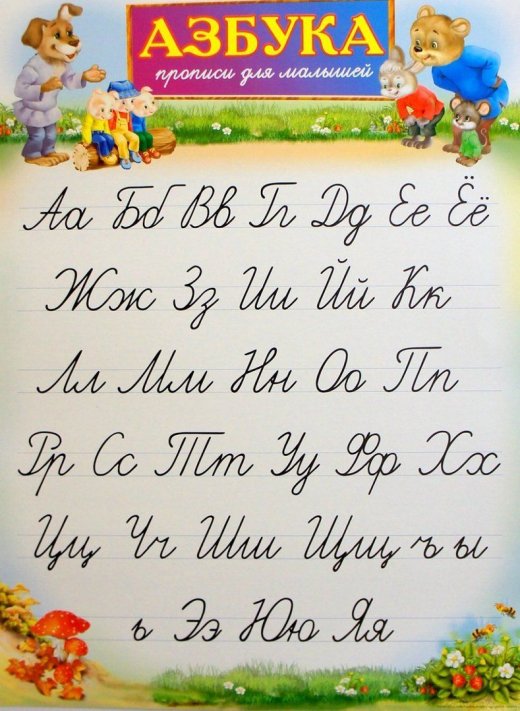 АЗБУКА
прописи для малышей
Аа Бб Вв Гг Дд Ее Ёё
Жж Зз Ии Йй Кк
Лл Мм Нн Оо Пп
Рр Сс Тт Уу Фф Хх
Цц Чч Шш Щщ ъ ы
ь Ээ Юю Яя